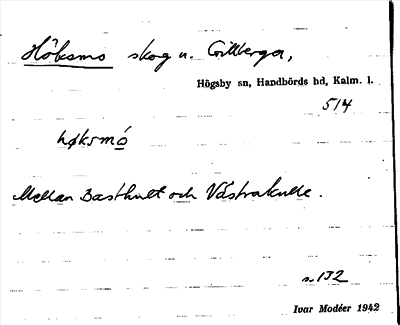 Höksmo skog u. Gillberga,
Högsby sn, Handbörds hd, Kalm. l.
514
høksmó
Mellan Basthult och Västrakulle.
s. 132
Ivar Modéer 1942